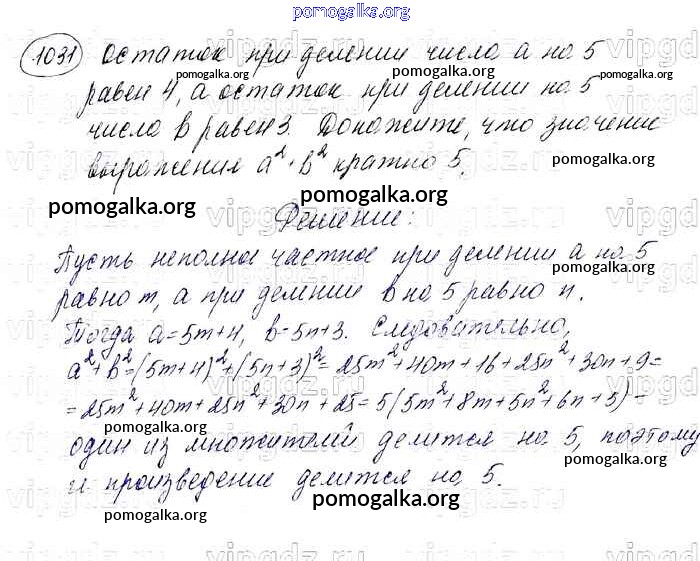 pomogalka.org
1031 Остаток при делении числа a на 5
pomogalka.org pomogalka.org
равен 4, а остаток при делении на 5
pomogalka.org
числа b равен 3. Докажите, что значение
pomogalka.org
выражения a² + b² кратно 5.
pomogalka.org
pomogalka.org
Решение:
Пусть неполное частное при делении a на 5
pomogalka.org
равно m, а при делении b на 5 равно n.
Тогда a=5m+4, b=5n+3. Следовательно,
pomogalka.org
a²+b²=(5m+4)²+(5n+3)²=25m²+40m+16+25n²+30n+9=
=25m²+40m+25n²+30n+25=5(5m²+8m+5n²+6n+5) -
один из множителей делится на 5, поэтому
pomogalka.org
и произведение делится на 5.
pomogalka.org
pomogalka.org